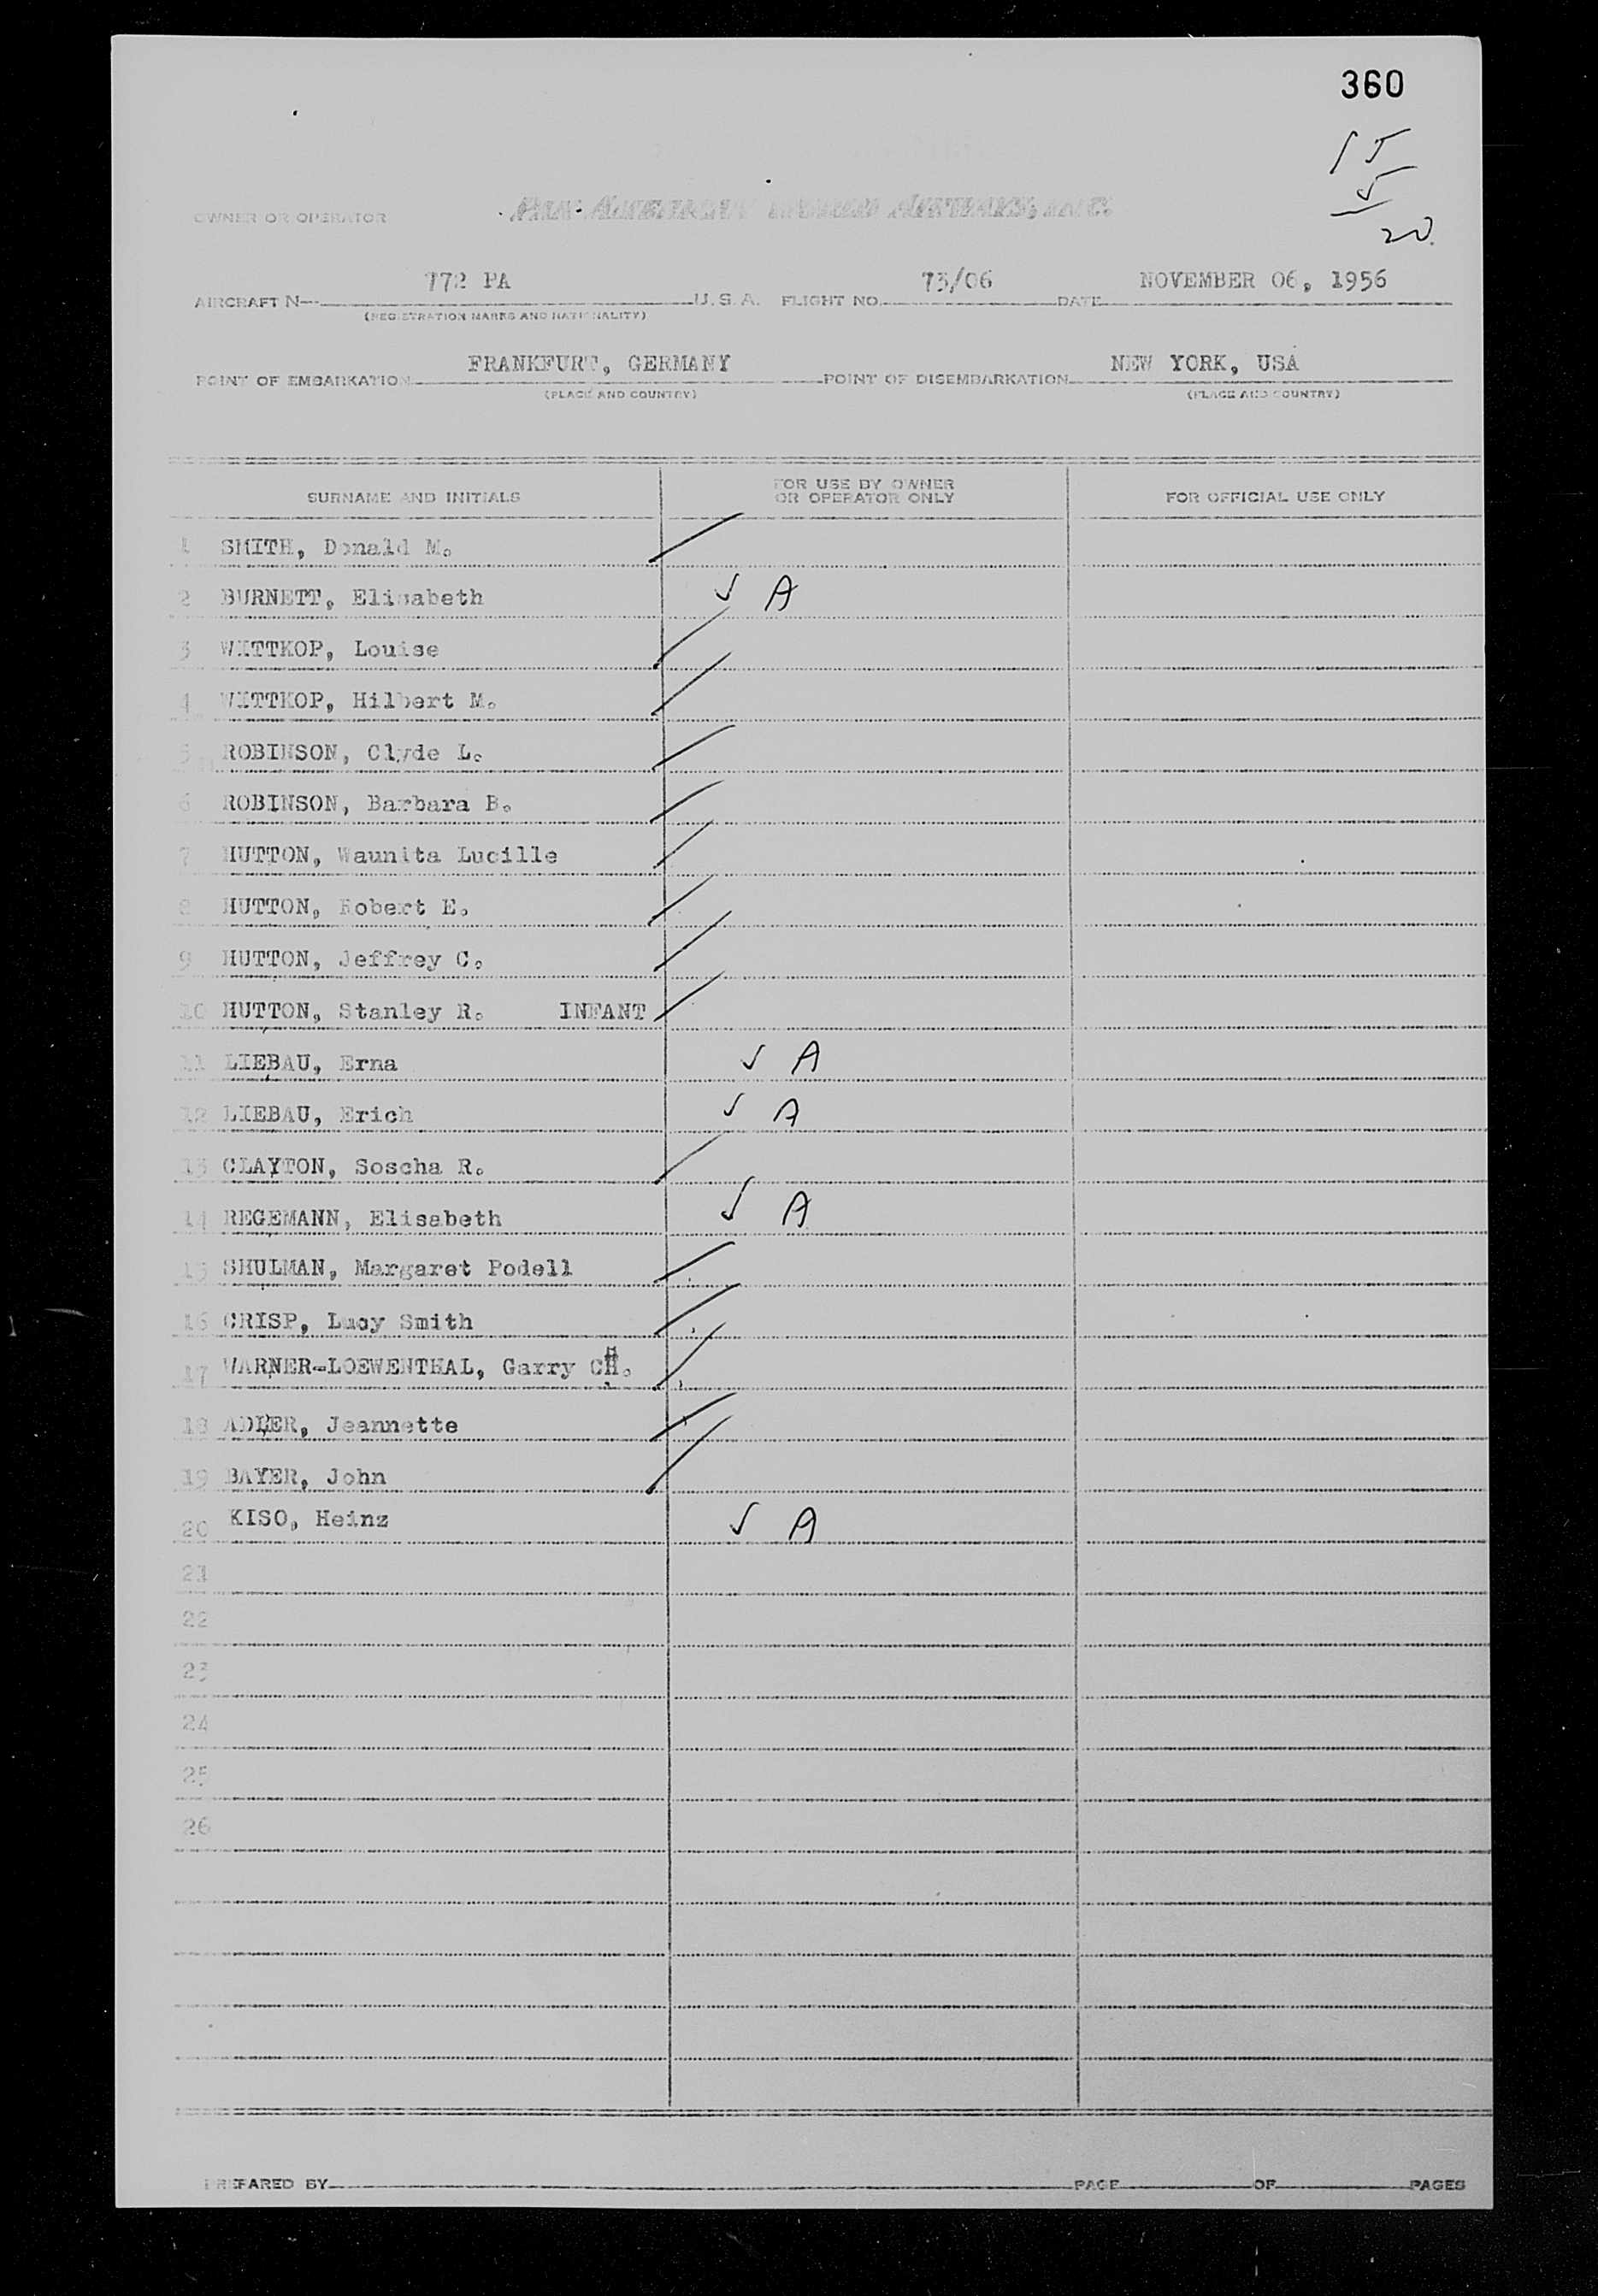 360
15
5
20.
OWNER OR OPERATOR PAN AMERICAN WORLD AIRWAYS, INC.
AIRCRAFT N— 772 PA U.S.A. FLIGHT NO. 73/06 DATE NOVEMBER 06, 1956
(REGISTRATION MARKS AND NATIONALITY)
POINT OF EMBARKATION FRANKFURT, GERMANY POINT OF DISEMBARKATION NEW YORK, USA
(PLACE AND COUNTRY) (PLACE AND COUNTRY)
SURNAME AND INITIALS FOR USE BY OWNER OR OPERATOR ONLY FOR OFFICIAL USE ONLY
1 SMITH, Donald M.
2 BURNETT, Elisabeth ✓ A
3 WITTKOP, Louise
4 WITTKOP, Hilbert M.
5 ROBINSON, Clyde L.
6 ROBINSON, Barbara B.
7 HUTTON, Waunita Lucille
8 HUTTON, Robert E.
9 HUTTON, Jeffrey C.
10 HUTTON, Stanley R. INFANT
11 LIEBAU, Erna ✓ A
12 LIEBAU, Erich ✓ A
13 CLAYTON, Soscha R.
14 REGEMANN, Elisabeth ✓ A
15 SHULMAN, Margaret Podell
16 CRISP, Lucy Smith
17 WARNER-LOEWENTHAL, Garry CH.
18 ADLER, Jeannette
19 BAYER, John
20 KISO, Heinz ✓ A
21
22
23
24
25
26
PREPARED BY PAGE OF PAGES